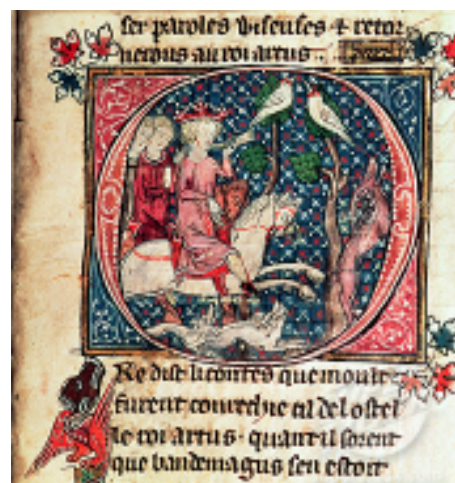 ser paroles oiseuses & retor
nerons au roi artus.
Re dist li contes que mout
furent courechie cil del ostel
le roi artus. quant il sorent
que bandemagus sen estoit